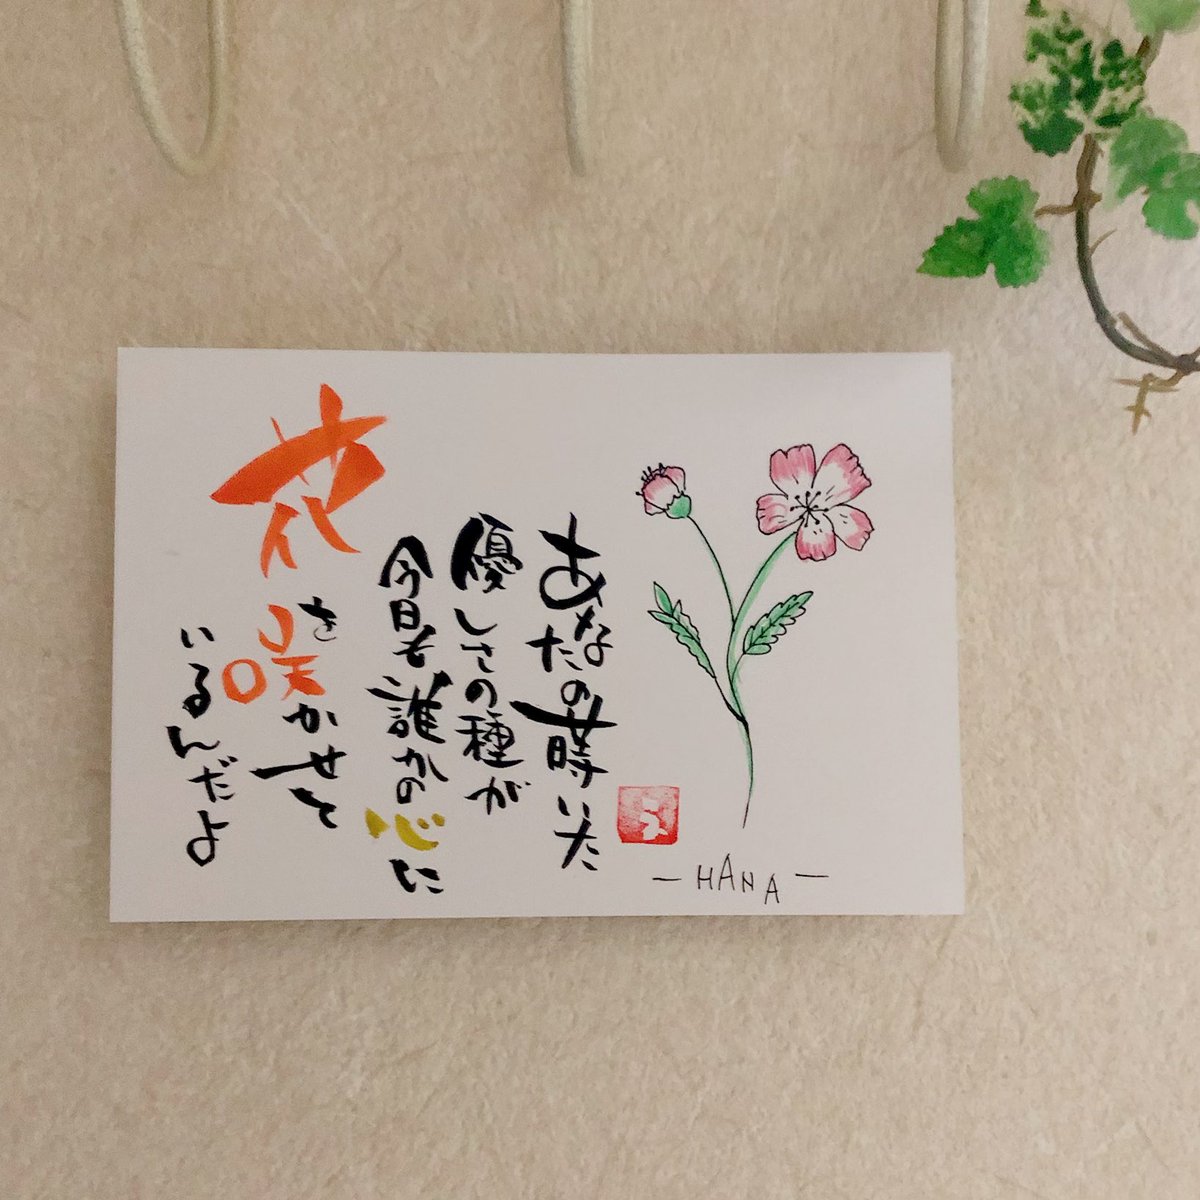 あなたの蒔いた
優しさの種が
今日も誰かの心に
花を咲かせて
いるんだよ
-HANA-